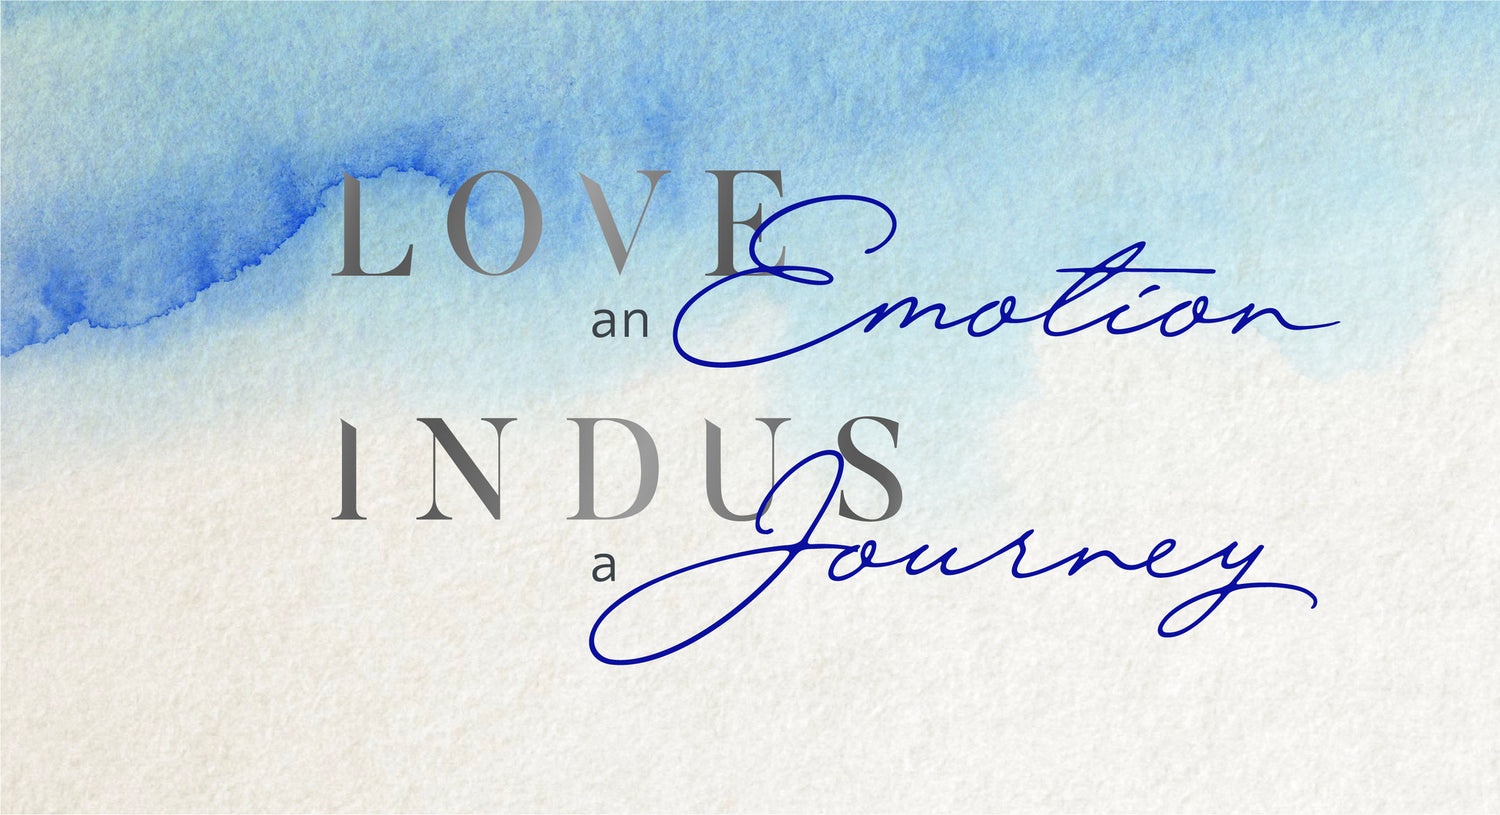 LOVE
an Emotion
INDUS
a Journey